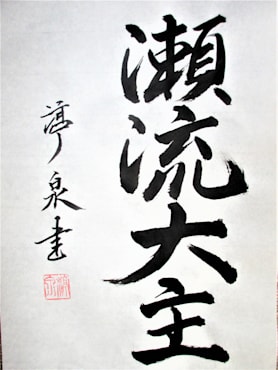 瀬流大主
渟泉書